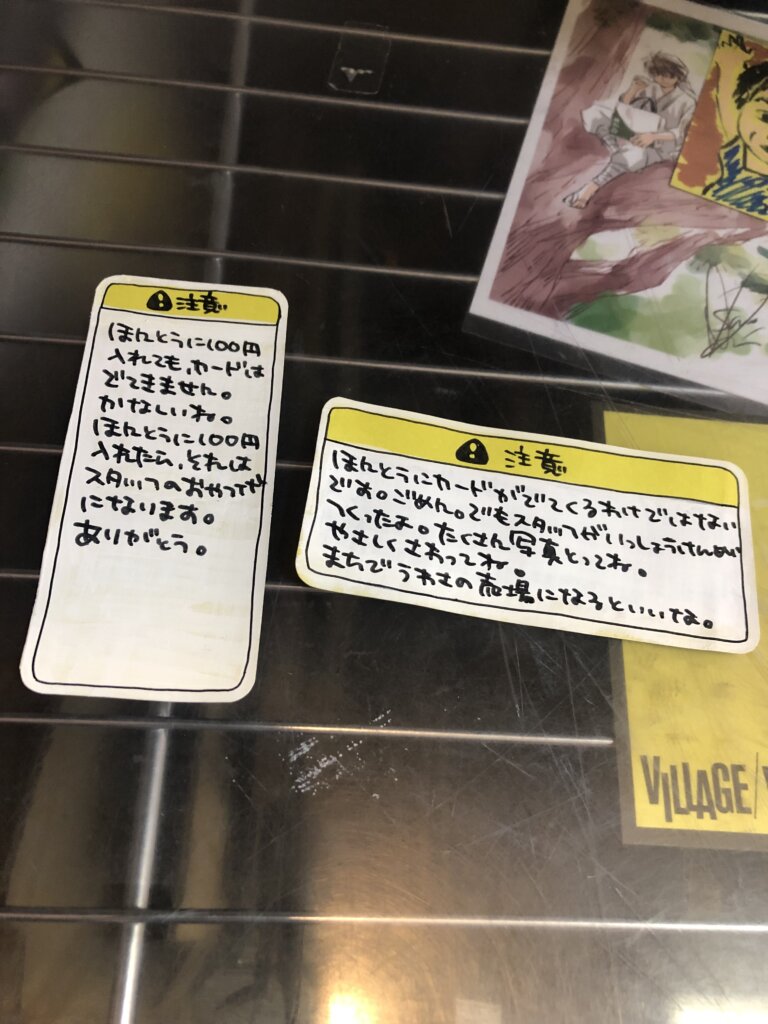 注意
ほんとうに100円
入れても、カードは
でてきません。
かなしいね。
ほんとうに100円
入れたら、それは
スタッフのおやつ代
になります。
ありがとう。
注意
ほんとうにカードがでてくるわけではない
です。ごめん。でもスタッフがいっしょうけんめい
つくったよ。たくさん写真とってね。
やさしくさわってね。
まちでうわさの売場になるといいな。
VILLAGE/